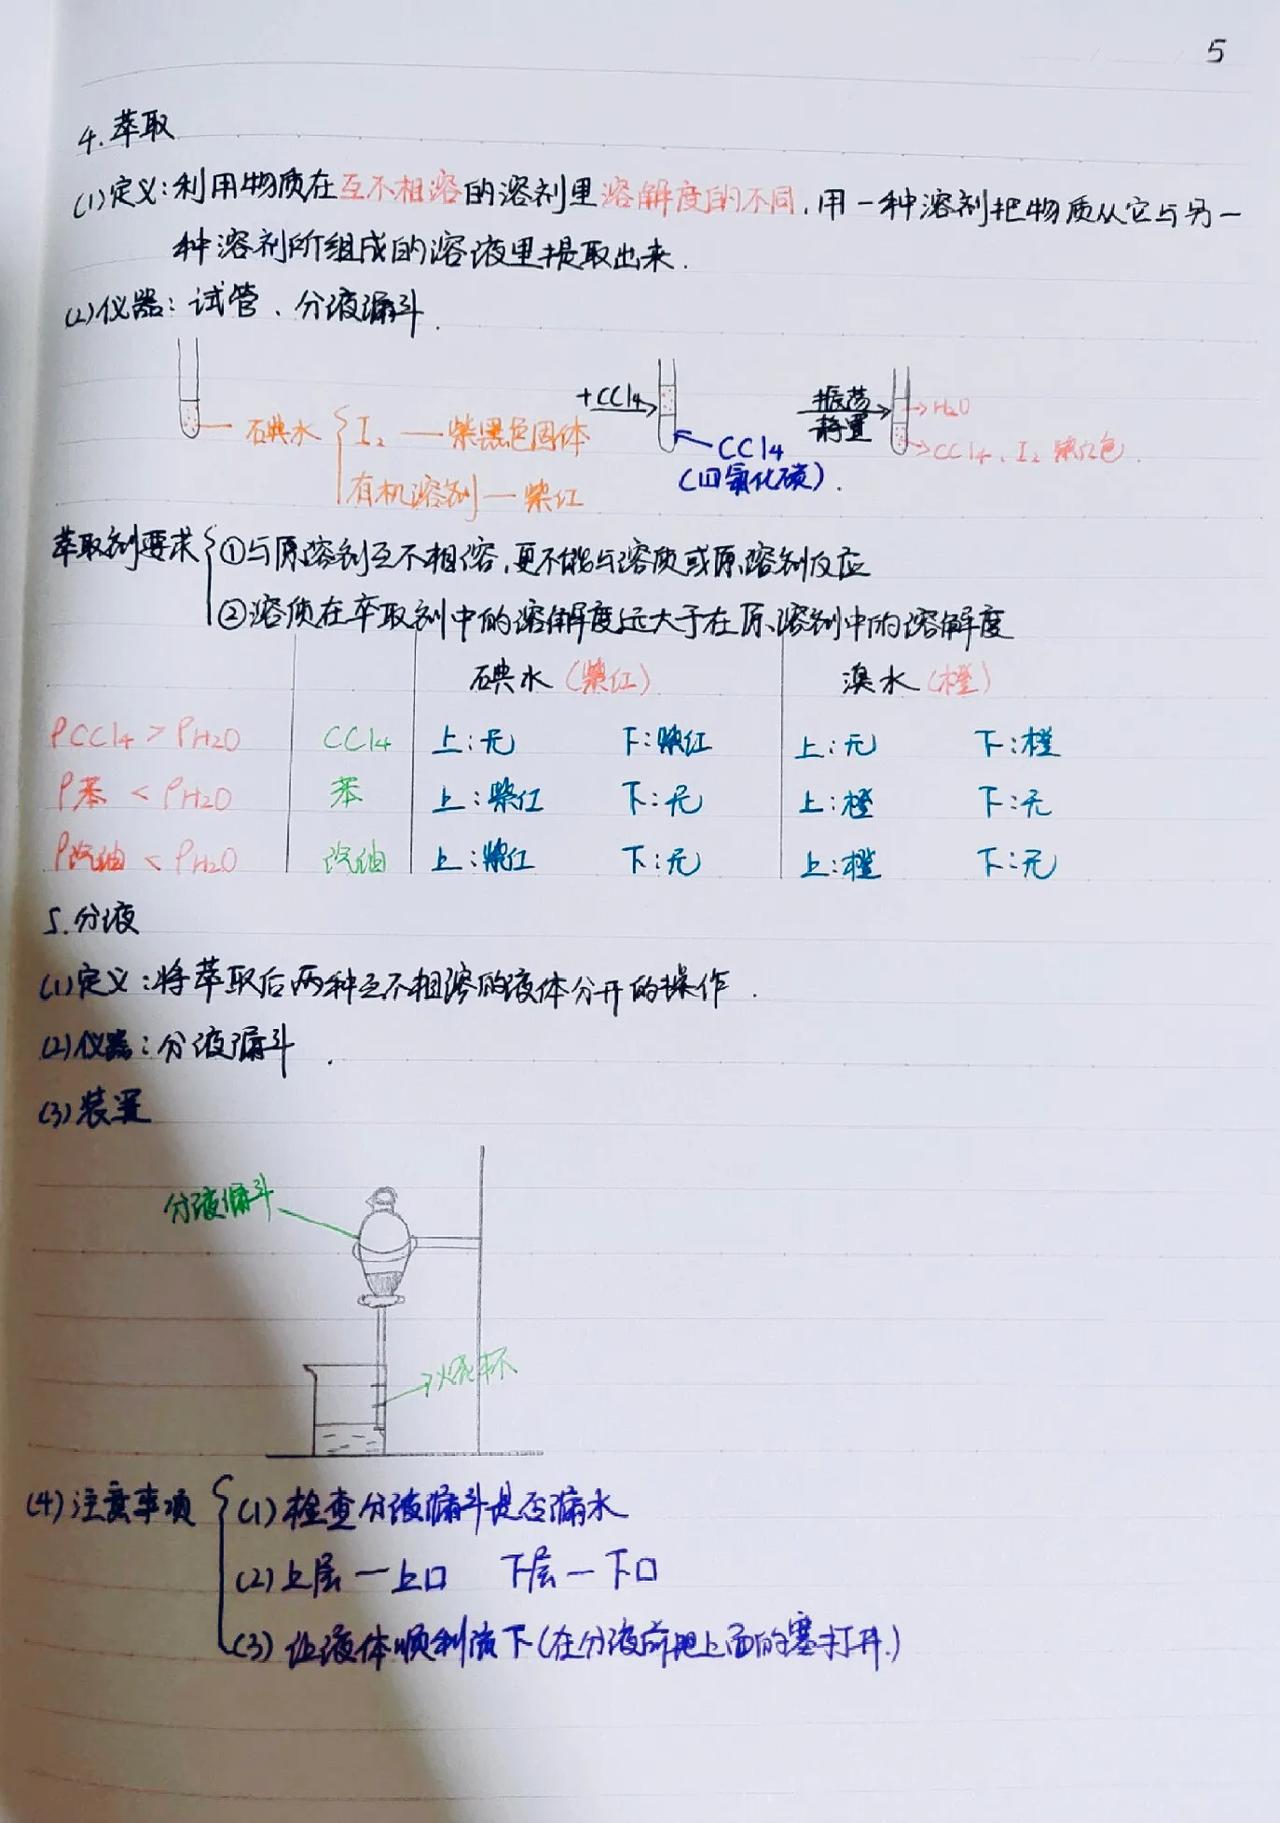 5
4.萃取
(1)定义:利用物质在互不相溶的溶剂里溶解度的不同,用一种溶剂把物质从它与另一
种溶剂所组成的溶液里提取出来.
(2)仪器:试管、分液漏斗.
碘水 { I₂ — 紫黑色固体
有机溶剂 — 紫红
+CCl4
CCl4
(四氯化碳).
振荡
静置
H₂O
CCl4、I₂ 紫红色.
萃取剂要求 { ①与原溶剂互不相溶,更不能与溶质或原溶剂反应
②溶质在萃取剂中的溶解度远大于在原溶剂中的溶解度
碘水(紫红) 溴水(橙)
ρCCl4 > ρH2O CCl4 上:无 下:紫红 上:无 下:橙
ρ苯 < ρH2O 苯 上:紫红 下:无 上:橙 下:无
ρ汽油 < ρH2O 汽油 上:紫红 下:无 上:橙 下:无
5.分液
(1)定义:将萃取后两种互不相溶的液体分开的操作.
(2)仪器:分液漏斗.
(3)装置
分液漏斗
烧杯
(4)注意事项 { (1)检查分液漏斗是否漏水
(2)上层—上口 下层—下口
(3)让液体顺利流下(在分液前把上面的塞打开.)